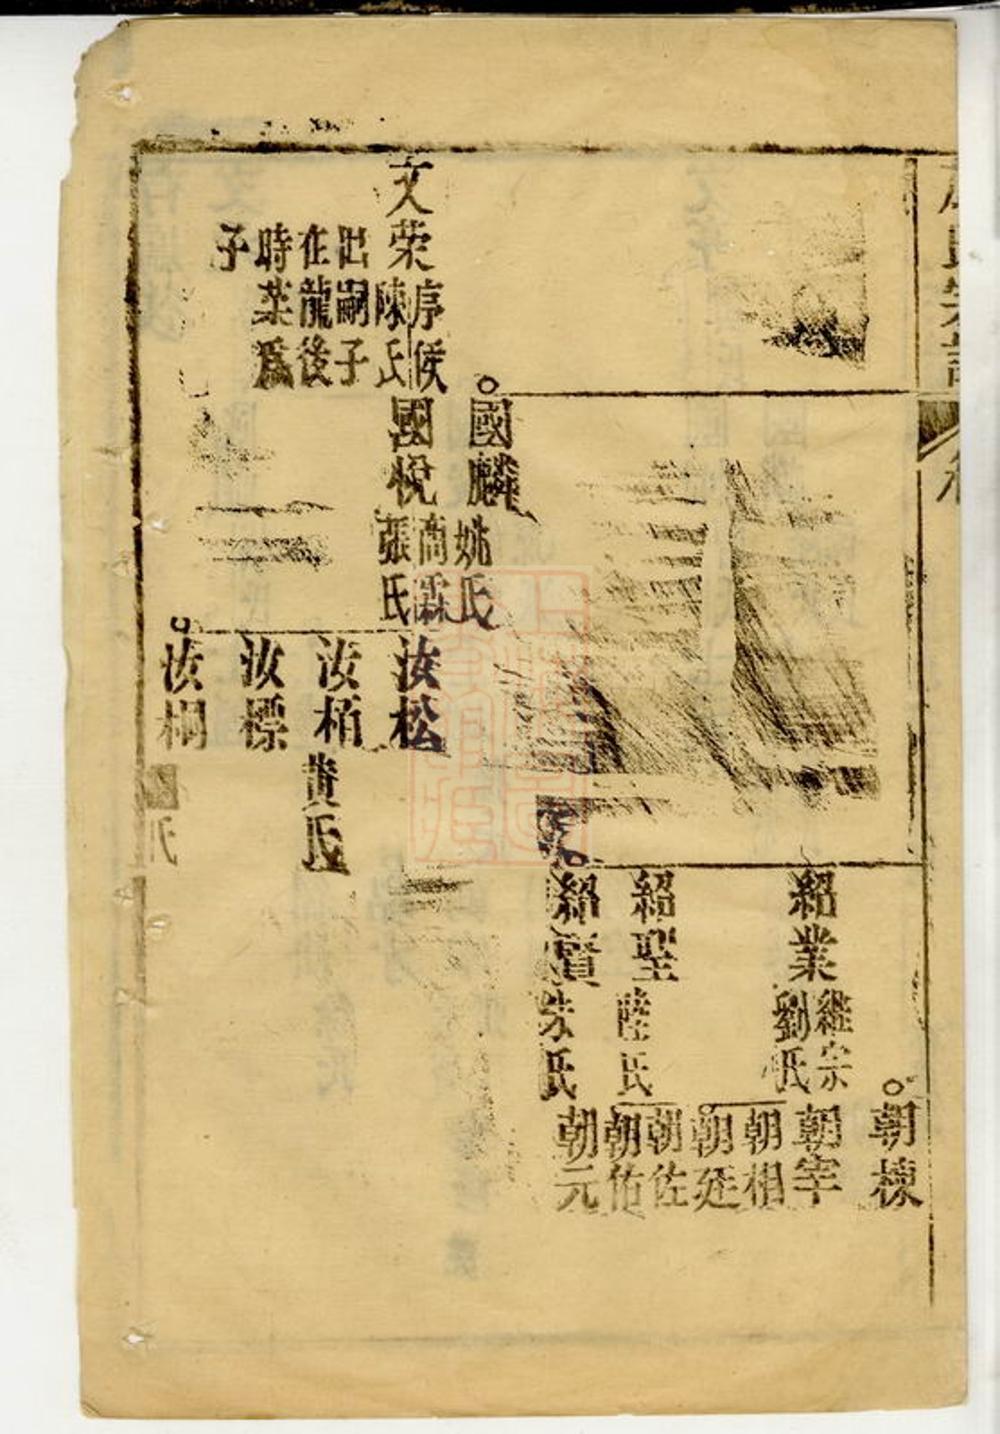 氏宗譜
朝棟
紹業
繼宗
劉氏
朝宰
朝相
朝廷
紹聖
陸氏
朝佐
朝佑
紹賢
朱氏
朝元
國麟
姚氏
文荣
序侯
陳氏
出嗣子
在龍後
時荣爲
子
國悅
商霖
張氏
汝松
汝栢
黄氏
汝標
汝桐